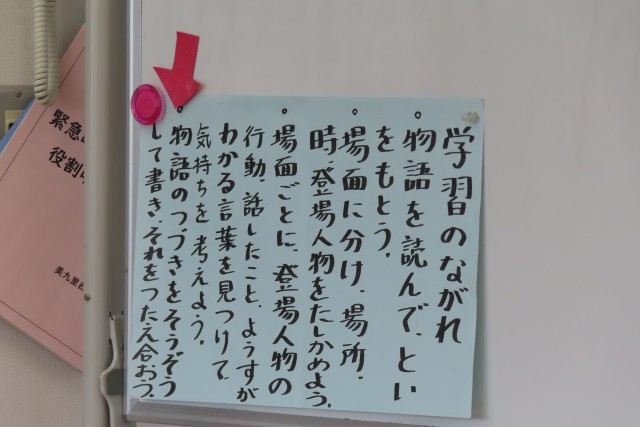 学習のながれ
。物語を読んで、とい
をもとう。
。場面に分け、場所、
時、登場人物をたしかめよう。
。場面ごとに、登場人物の
行動、話したこと、ようすが
わかる言葉を見つけて、
気持ちを考えよう。
。物語のつづきをそうぞう
して書き、それをつたえ合おう。
緊急
役割
美九里